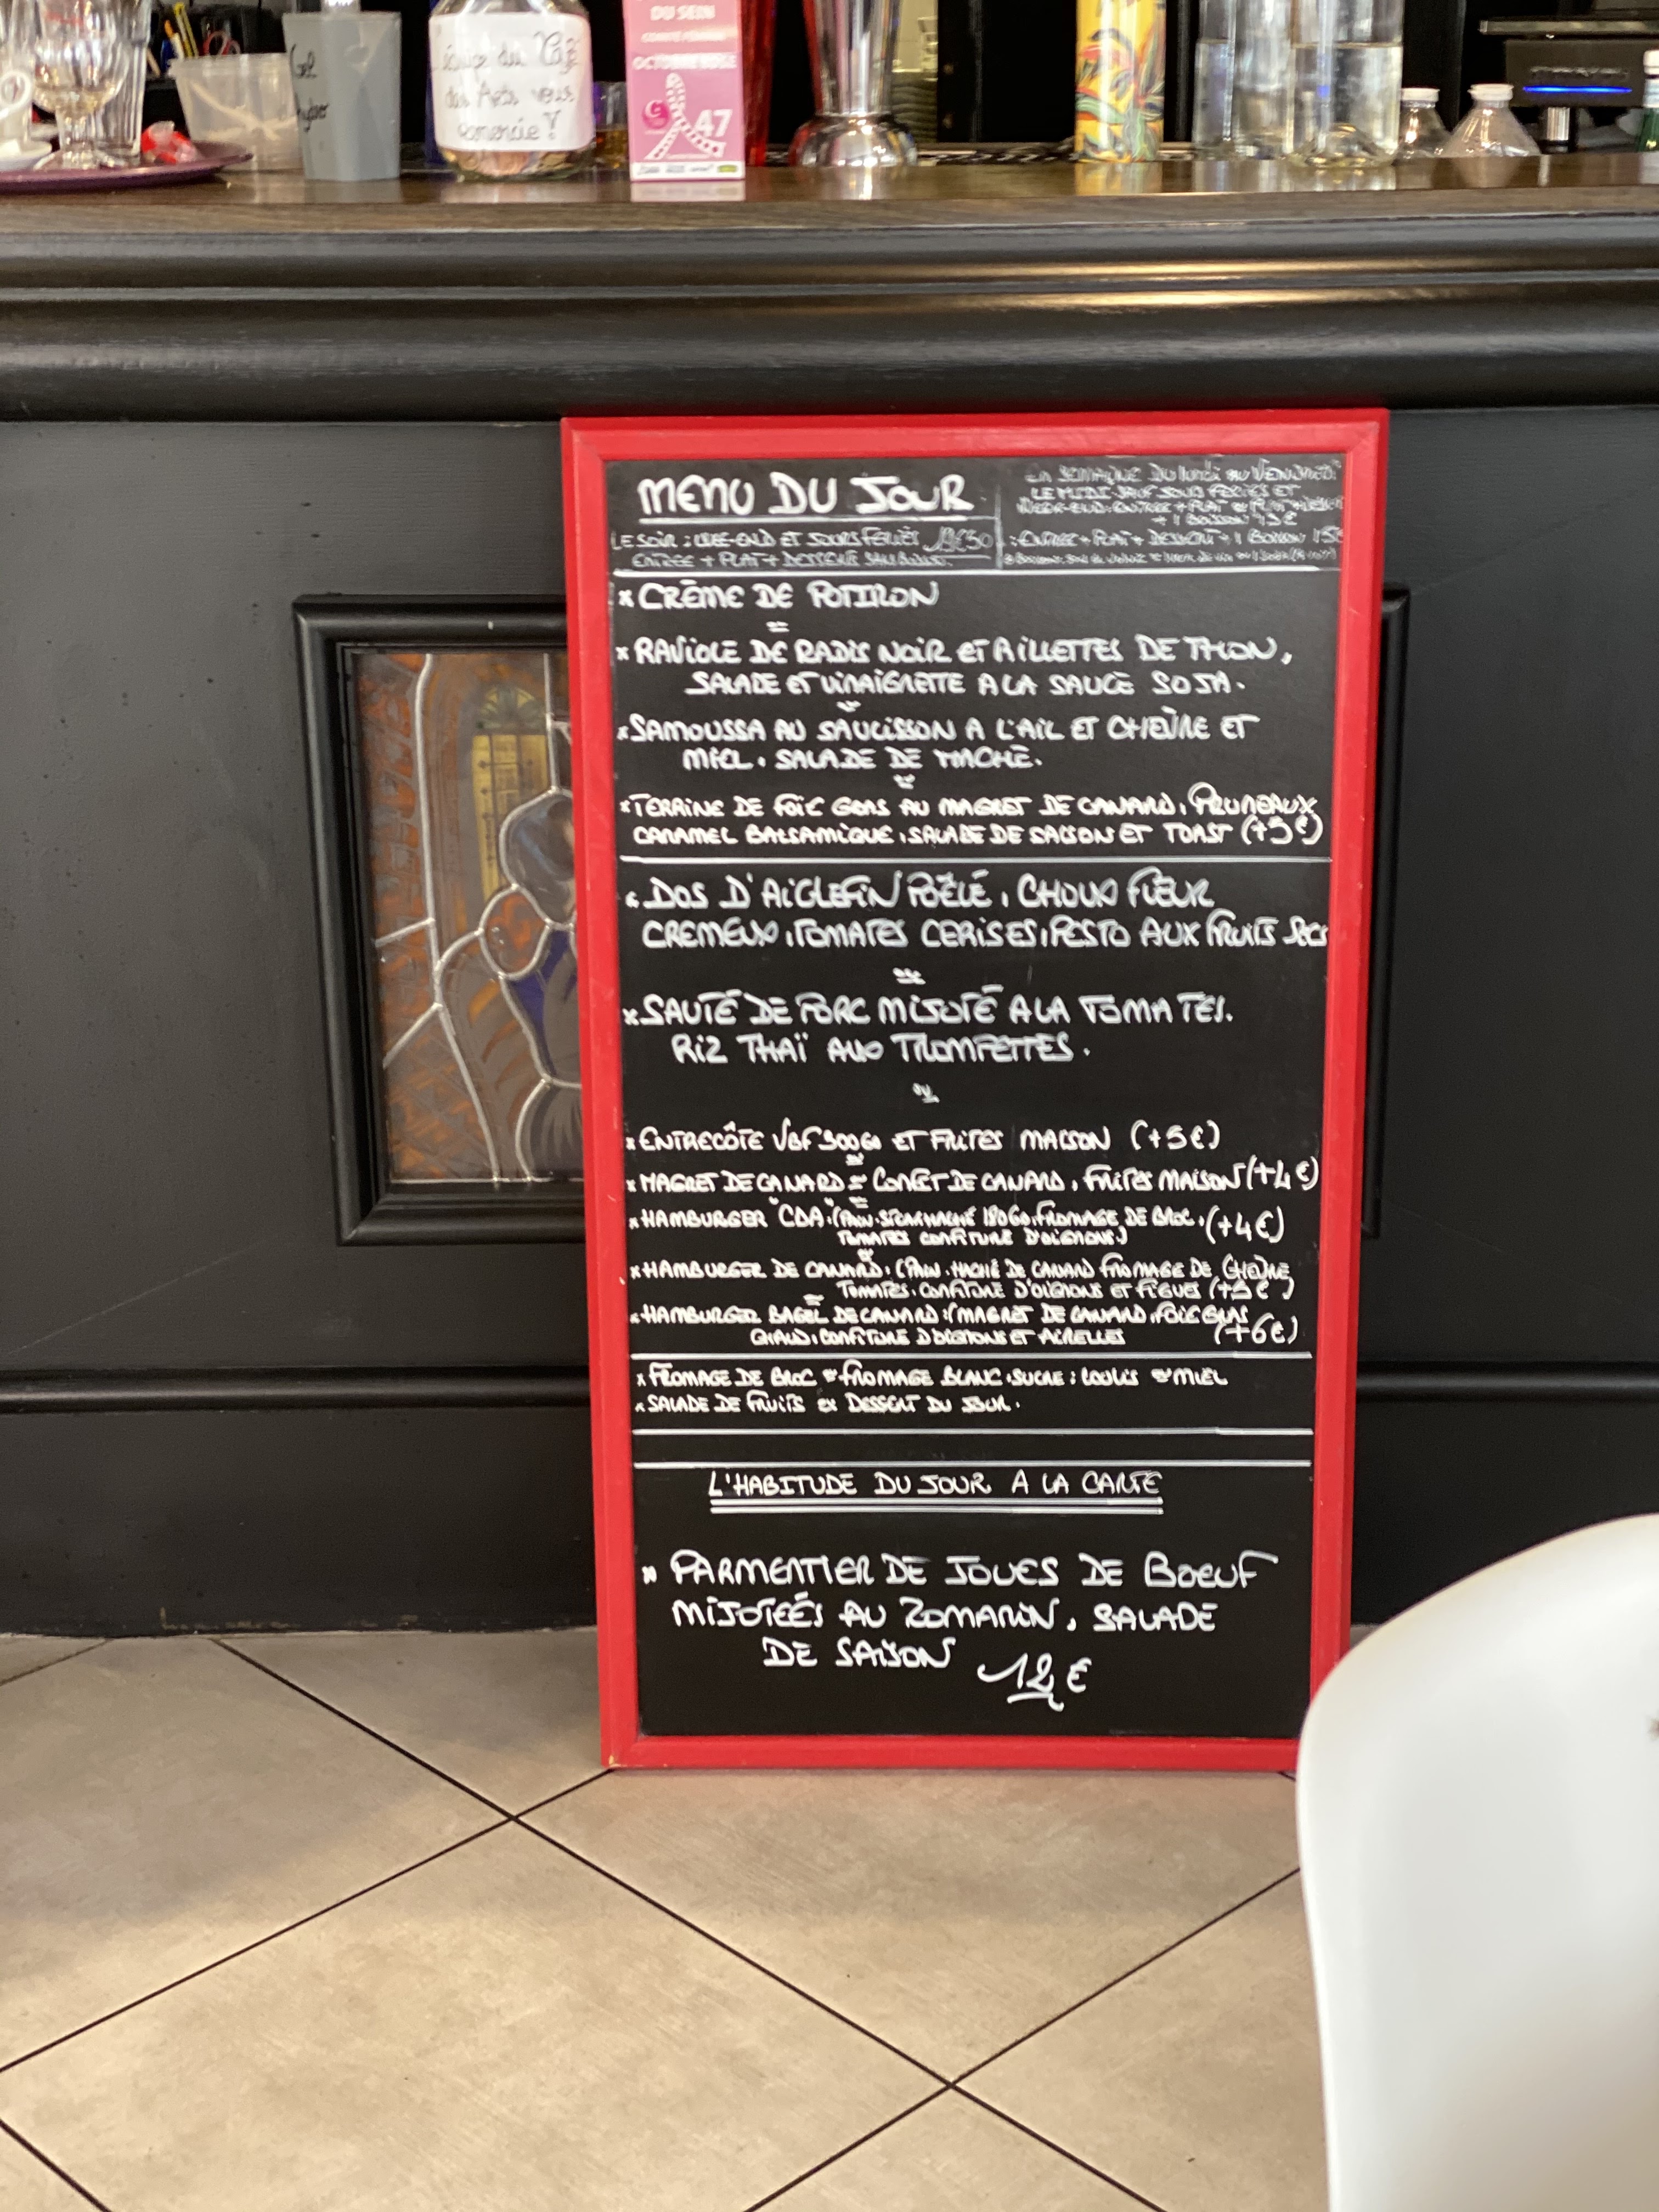 Gel
hydro
du Café
des Arts vous
remercie !
DU SEIN
OCTOBRE ROSE
47
MENU DU JOUR
LE SOIR : WEE-END ET JOURS FERIÉS 19€50
ENTRÉE + PLAT + DESSERT SANS
EN SEMAINE DU LUNDI AU VENDREDI
LE MIDI SAUF JOURS FERIÉS ET
WEEK-END: ENTRÉE + PLAT
+ 1 BOISSON 13€
: ENTRÉE + PLAT + DESSERT + 1 BOISSON 15€
* CRÈME DE POTIRON
=
* RAVIOLE DE RADIS NOIR ET RILLETTES DE THON,
SALADE ET VINAIGRETTE A LA SAUCE SOJA.
* SAMOUSSA AU SAUCISSON A L'AIL ET CHÈVRE ET
MIEL. SALADE DE MACHE.
* TERRINE DE FOIE GRAS AU MAGRET DE CANARD, PRUNEAUX,
CARAMEL BALSAMIQUE, SALADE DE SAISON ET TOAST (+3€)
* DOS D'AIGLEFIN POÊLÉ, CHOUX FLEUR
CREMEUX, TOMATES CERISES, PESTO AUX FRUITS SECS
* SAUTÉ DE PORC MIJOTÉ A LA TOMATES.
RIZ THAÏ AUX TROMPETTES.
* ENTRECÔTE VBF 300G ET FRITES MAISON (+5€)
* MAGRET DE CANARD = CONFIT DE CANARD, FRITES MAISON (+4€)
* HAMBURGER "CDA" (PAIN. STEAK HACHÉ 180G, FROMAGE DE BREBIS, (+4€)
TOMATES CONFITURE D'OIGNONS.)
* HAMBURGER DE CANARD. (PAIN. HACHÉ DE CANARD FROMAGE DE CHÈVRE
TOMATES. CONFITURE D'OIGNONS ET FIGUES (+5€)
* HAMBURGER BAGEL DE CANARD: (MAGRET DE CANARD, FOIE GRAS
CHAUD, CONFITURE D'OIGNONS ET AIRELLES (+6€)
* FROMAGE DE BREBIS FROMAGE BLANC. SUCRE: COULIS MIEL
* SALADE DE FRUITS DESSERT DU JOUR.
L'HABITUDE DU JOUR A LA CARTE
* PARMENTIER DE JOUES DE BOEUF
MIJOTÉES AU ROMARIN, SALADE
DE SAISON 12€